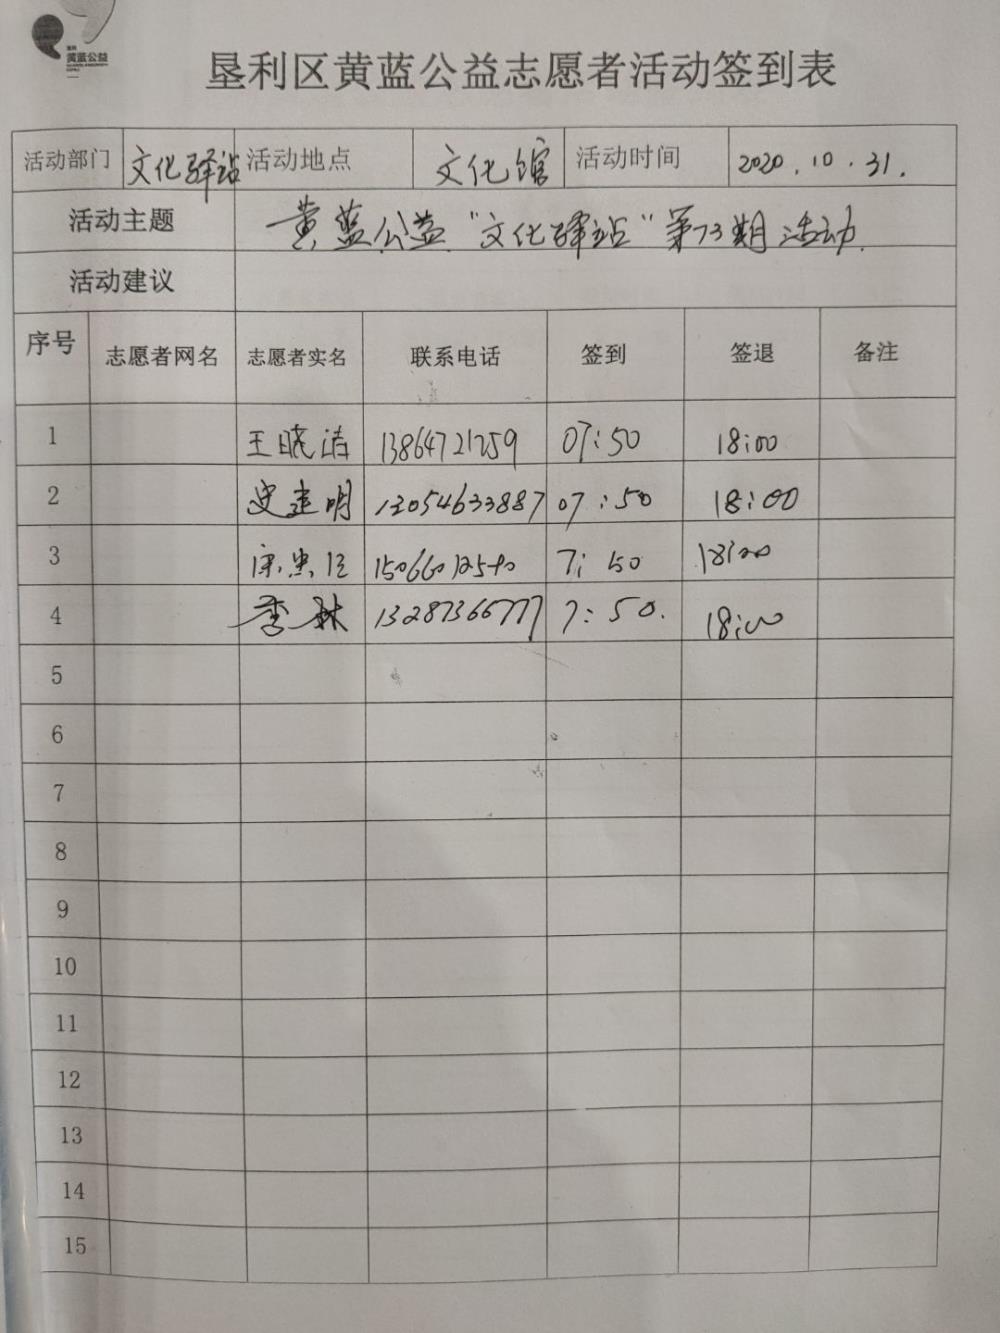 黄蓝公益
垦利区黄蓝公益志愿者活动签到表
活动部门 文化驿站 活动地点 文化馆 活动时间 2020.10.31.
活动主题 黄蓝公益"文化驿站"第73期活动.
活动建议
序号 志愿者网名 志愿者实名 联系电话 签到 签退 备注
1 王晓洁 13864721259 07:50 18:00
2 史建明 13054633887 07:50 18:00
3 7:50 18:00
4 李林 13287366777 7:50. 18:00
5
6
7
8
9
10
11
12
13
14
15